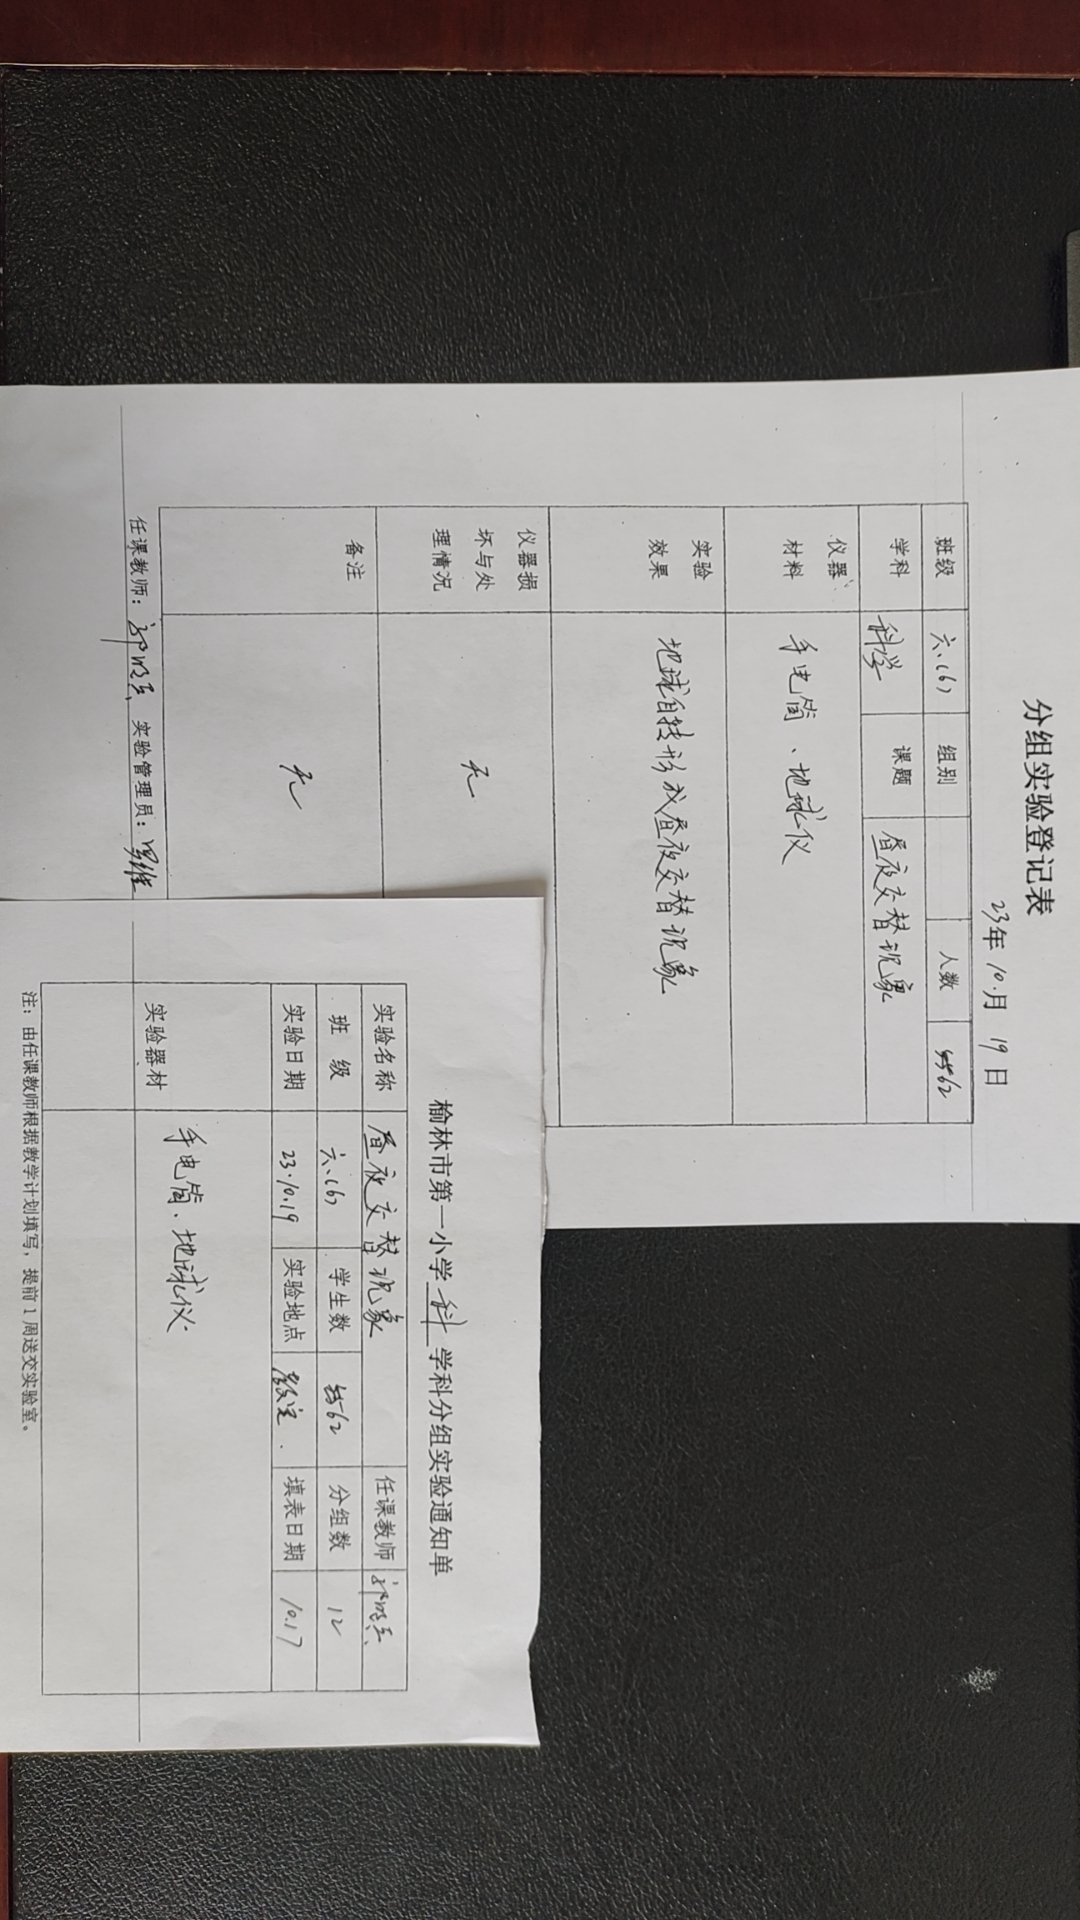 分组实验登记表
23年10月19日
班级 六、(6) 组别 人数 62
学科 科学 课题 昼夜交替现象
仪器、材料 手电筒、地球仪
实验效果 地球自转形成昼夜交替现象
仪器损坏与处理情况 无
备注 无
任课教师： 实验管理员：
榆林市第一小学科学科分组实验通知单
实验名称 昼夜交替现象 任课教师
班级 六、(6) 学生数 62 分组数 12
实验日期 23.10.19 实验地点 教室. 填表日期 10.17
实验器材 手电筒、地球仪.
注：由任课教师根据教学计划填写，提前1周送交实验室。